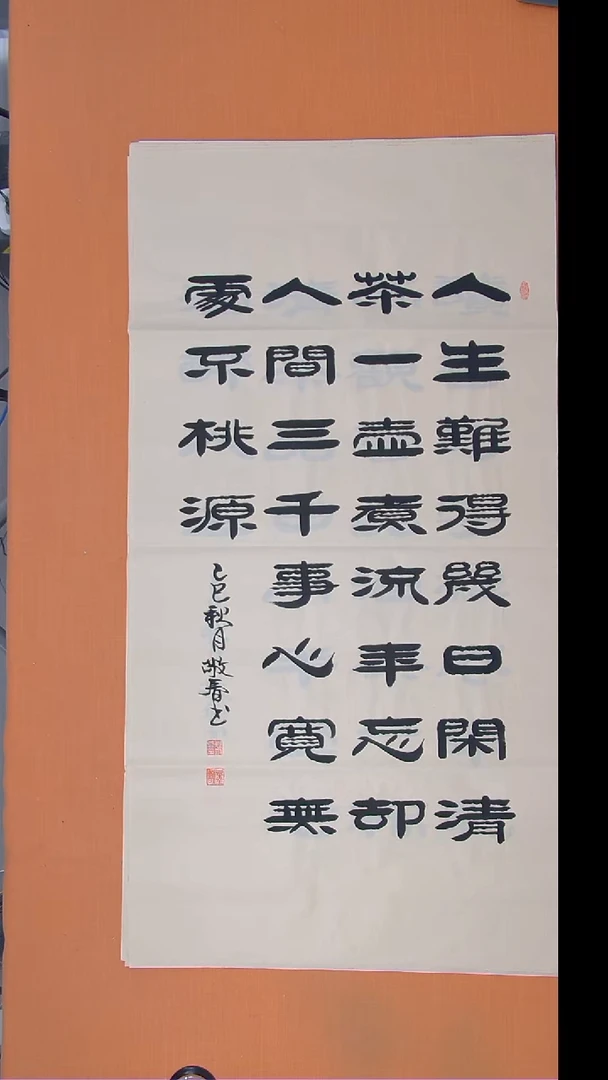 人生難得幾日閑清
茶一壺煮流年忘却
人間三千事心寬無
處不桃源
乙巳秋月敬春书